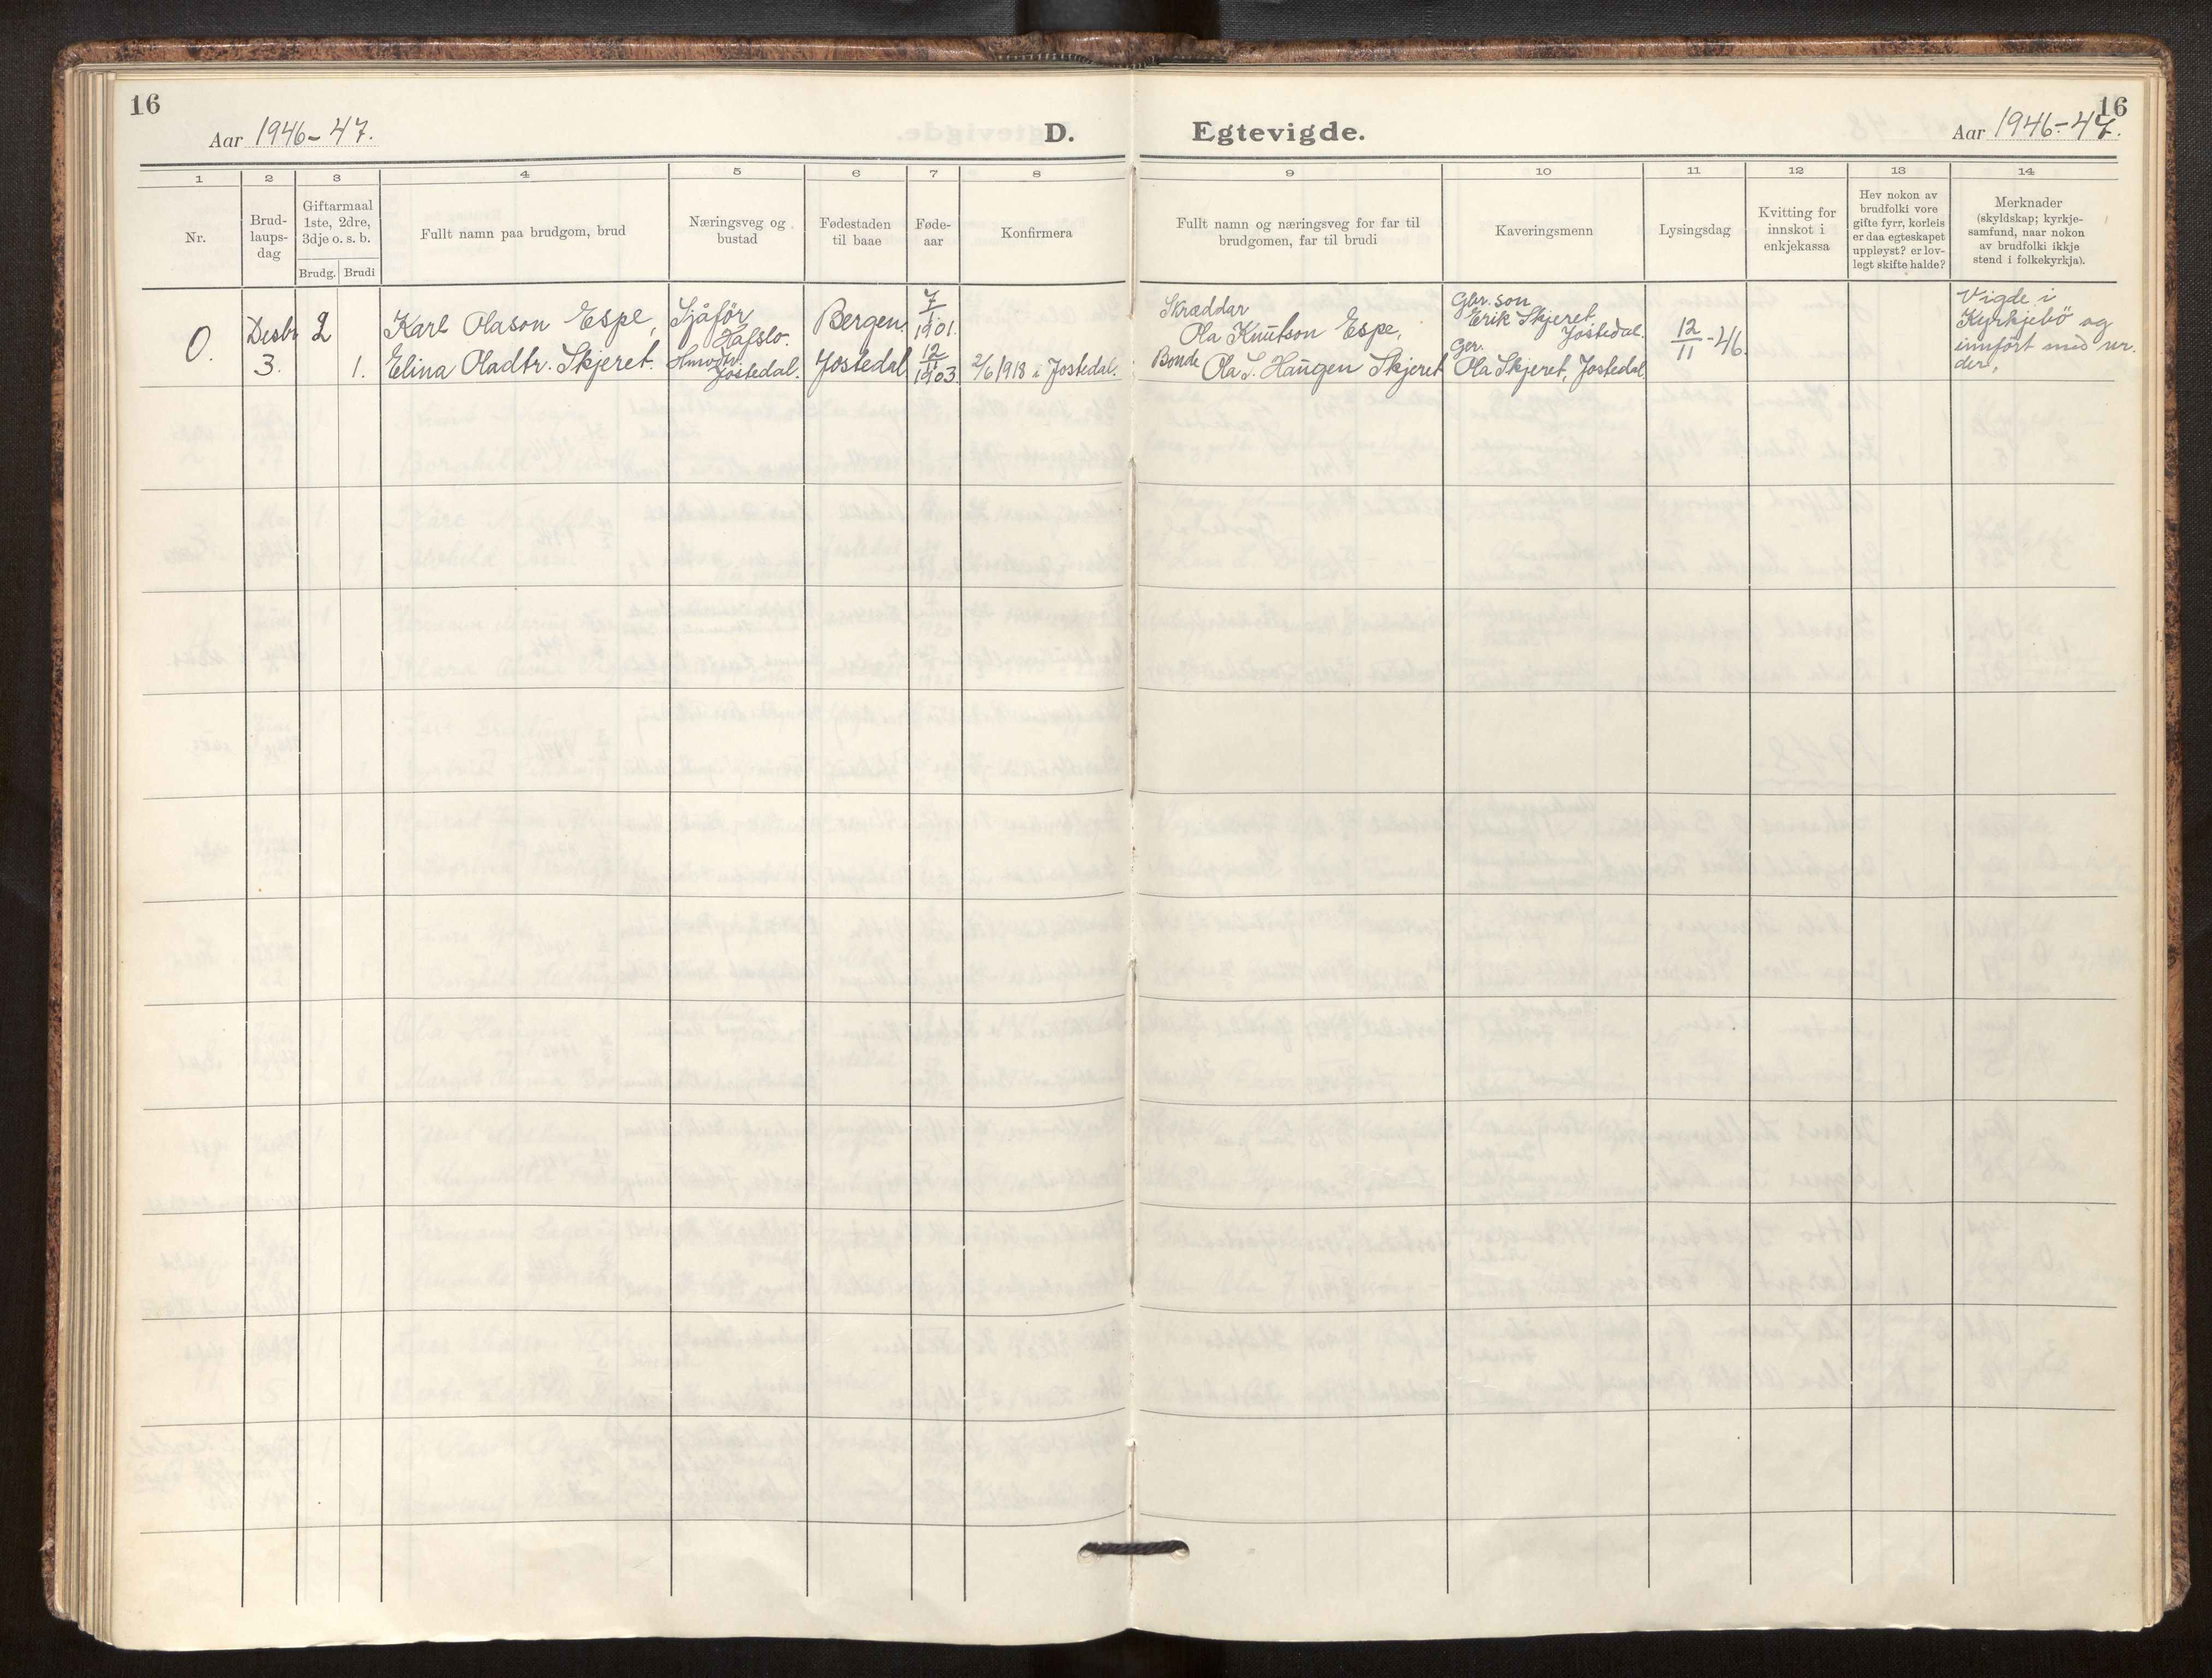 16
Aar 1946-47.
D.
Egtevigde.
16
Aar 1946-47.
1 2 3 4 5 6 7 8 9 10 11 12 13 14
Nr.
Brud-
laups-
dag
Giftarmaal
1ste, 2dre,
3dje o. s. b.
Brudg. Brudi
Fullt namn paa brudgom, brud
Næringsveg og
bustad
Fødestaden
til baae
Føde-
aar
Konfirmera
Fullt namn og næringsveg for far til
brudgomen, far til brudi
Kaveringsmenn
Lysingsdag
Kvitting for
innskot i
enkjekassa
Hev nokon av
brudfolki vore
gifte fyrr, korleis
er daa egteskapet
uppløyst? er lov-
legt skifte halde?
Merknader
(skyldskap; kyrkje-
samfund, naar nokon
av brudfolki ikkje
stend i folkekyrkja).
0.
Desbr
3.
2
1.
Karl Olason Espe,
Elina Oladtr. Skjeret.
Sjåför
Hafslo.
Jostedal.
Bergen
Jostedal
7/1
1901.
12/11
1903.
2/6 1918 i Jostedal.
Skræddar
Ola Knutson Espe,
Bonde Ola S. Haugen Skjeret
Gbr. son
Erik Skjeret
Jostedal.
Ola Skjeret, Jostedal.
12/11-46.
Vigde i
Kyrkjebö og
innfört med nr.
der,